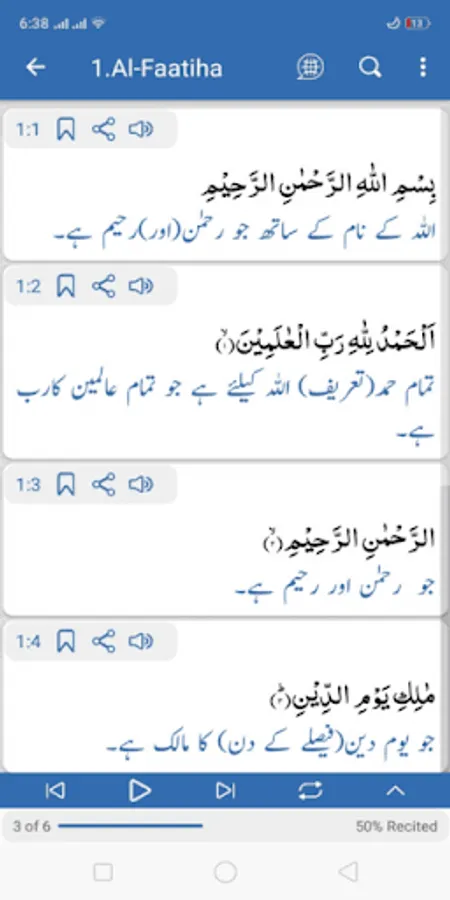 6:38
13
1.Al-Faatiha
1:1
بِسْمِ اللّٰهِ الرَّحْمٰنِ الرَّحِيْمِ
اللہ کے نام کے ساتھ جو رحمٰن(اور)رحیم ہے۔
1:2
اَلْحَمْدُ لِلّٰهِ رَبِّ الْعٰلَمِيْنَۙ(۱)
تمام حمد(تعریف) اللہ کیلئے ہے جو تمام عالمین کارب
ہے۔
1:3
الرَّحْمٰنِ الرَّحِيْمِۙ(۲)
جو رحمٰن اور رحیم ہے۔
1:4
مٰلِكِ يَوْمِ الدِّيْنِؕ(۳)
جو یوم دین(فیصلے کے دن) کا مالک ہے۔
3 of 6
50% Recited